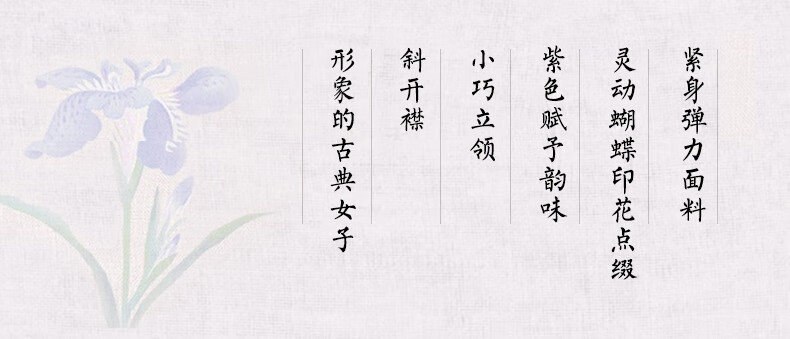 紧身弹力面料
灵动蝴蝶印花点缀
紫色赋予韵味
小巧立领
斜开襟
形象的古典女子